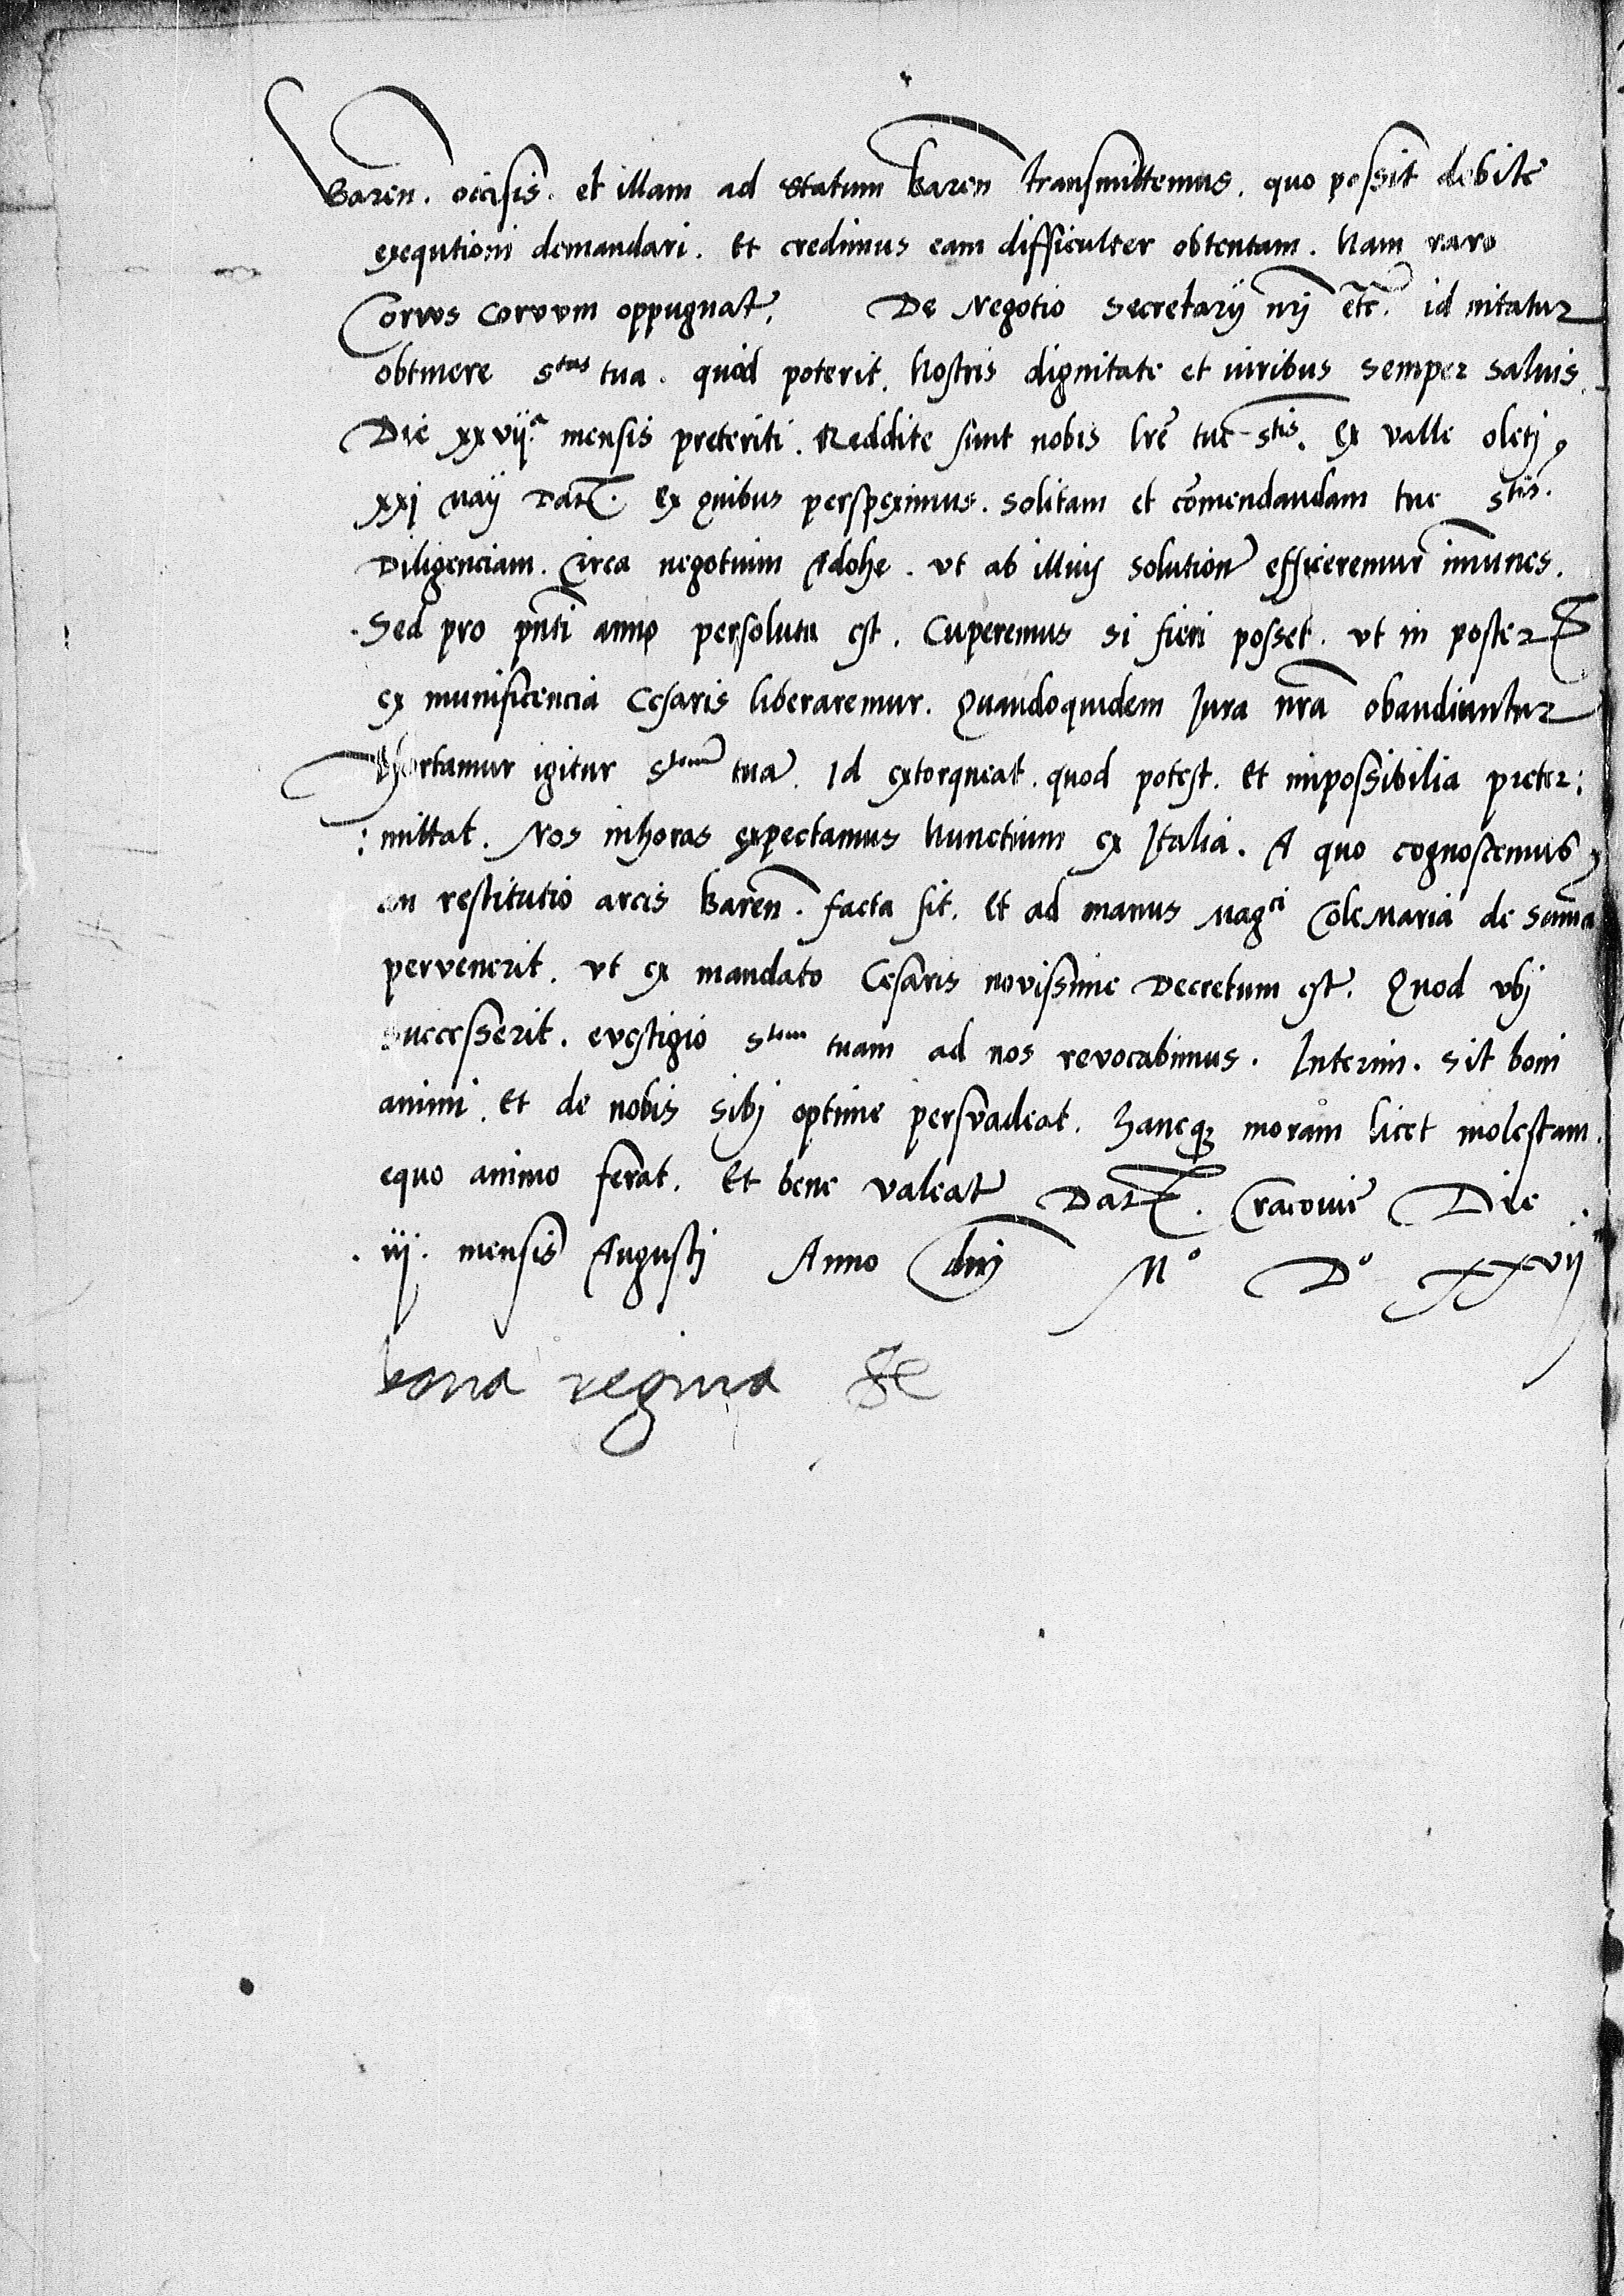 Baren. occisis. et illam ad Statum Baren transmittemus. quo possit debite
exequtioni demandari. Et credimus eam difficulter obtentam. Nam raro
Corvus corvum oppugnat. De Negotio Secretarij nrj etc. id nitatur
obtinere Stas tua. quod poterit. Nostris dignitate et iuribus semper saluis.
Die xxvija mensis preteriti. Reddite sunt nobis lre tue Stis. Ex valle oletj
xxj Maij Dat. Ex quibus perspeximus. solitam et comendandam tue Stis.
Diligenciam. Circa negotium Adohe. vt ab illius solutione efficeremur imunes.
Sed pro pnti anno persoluta est. Cuperemus si fieri posset. vt in poster
ex munificencia Cesaris liberaremur. Quandoquidem Jura nra obaudiuntur
Hortamur igitur Stem tua. Id extorqueat. quod potest. Et impossibilia preter:
:mittat. Nos inhoras expectamus Nunctium ex Italia. A quo cognoscemus
an restitutio arcis Baren. facta sit. Et ad manus Magci Cole Maria de Soma
pervenerit. vt ex mandato Cesaris novissime Decretum est. Quod vbj
successerit. evestigio Stem tuam ad nos revocabimus. Interim. sit boni
animi. Et de nobis sibj optime persvadeat. Hancq3 moram licet molestam.
equo animo ferat. Et bene valeat Dat. Cracovie Die
.iij. mensis Augustj Anno dnj Mo Do xxvij
bona regina